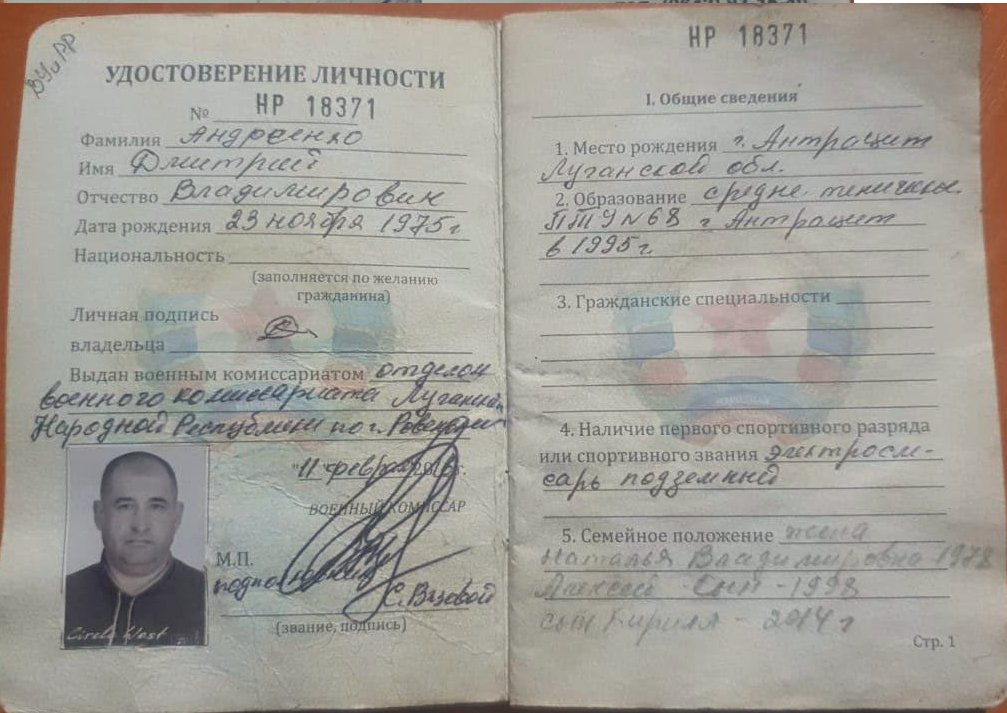 НР 18371
УДОСТОВЕРЕНИЕ ЛИЧНОСТИ
№ НР 18371
Фамилия Андреенко
Имя Дмитрий
Отчество Владимирович
Дата рождения 23 ноября 1975г
Национальность
(заполняется по желанию
гражданина)
Личная подпись
владельца
Выдан военным комиссариатом отделом
военного комиссариата Луганской
Народной Республики по г. Ровеньки
"11" февраля
ВОЕННЫЙ КОМИССАР
М.П.
подполковник
(звание, подпись)
Circle West
I. Общие сведения
1. Место рождения г. Антрацит
Луганской обл.
2. Образование средне
ПТУ N68 г Антрацит
в 1995г.
3. Гражданские специальности
4. Наличие первого спортивного разряда
или спортивного звания электросле-
сарь подземный
5. Семейное положение жена
Наталья Владимировна 1978
Алексей Сын - 1998
сын Кирилл - 2014 г
Стр. 1